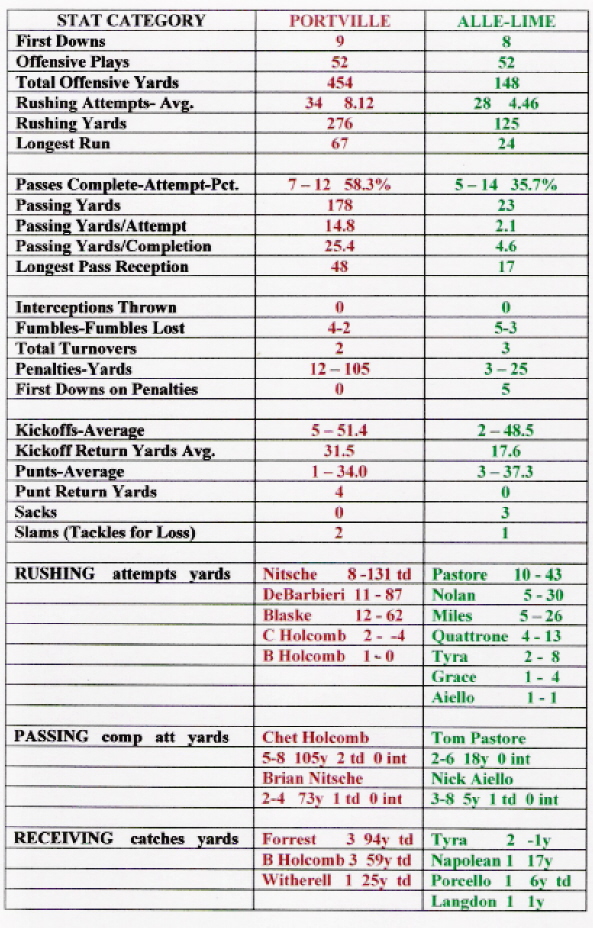 STAT CATEGORY PORTVILLE ALLE-LIME
First Downs 9 8
Offensive Plays 52 52
Total Offensive Yards 454 148
Rushing Attempts- Avg. 34 8.12 28 4.46
Rushing Yards 276 125
Longest Run 67 24
Passes Complete-Attempt-Pct. 7 – 12 58.3% 5 – 14 35.7%
Passing Yards 178 23
Passing Yards/Attempt 14.8 2.1
Passing Yards/Completion 25.4 4.6
Longest Pass Reception 48 17
Interceptions Thrown 0 0
Fumbles-Fumbles Lost 4-2 5-3
Total Turnovers 2 3
Penalties-Yards 12 – 105 3 – 25
First Downs on Penalties 0 5
Kickoffs-Average 5 – 51.4 2 – 48.5
Kickoff Return Yards Avg. 31.5 17.6
Punts-Average 1 – 34.0 3 – 37.3
Punt Return Yards 4 0
Sacks 0 3
Slams (Tackles for Loss) 2 1
RUSHING attempts yards Nitsche 8 -131 td Pastore 10 - 43
DeBarbieri 11 - 87 Nolan 5 - 30
Blaske 12 - 62 Miles 5 – 26
C Holcomb 2 - -4 Quattrone 4 - 13
B Holcomb 1 - 0 Tyra 2 - 8
Grace 1 - 4
Aiello 1 - 1
PASSING comp att yards Chet Holcomb Tom Pastore
5-8 105y 2 td 0 int 2-6 18y 0 int
Brian Nitsche Nick Aiello
2-4 73y 1 td 0 int 3-8 5y 1 td 0 int
RECEIVING catches yards Forrest 3 94y td Tyra 2 -1y
B Holcomb 3 59y td Napolean 1 17y
Witherell 1 25y td Porcello 1 6y td
Langdon 1 1y